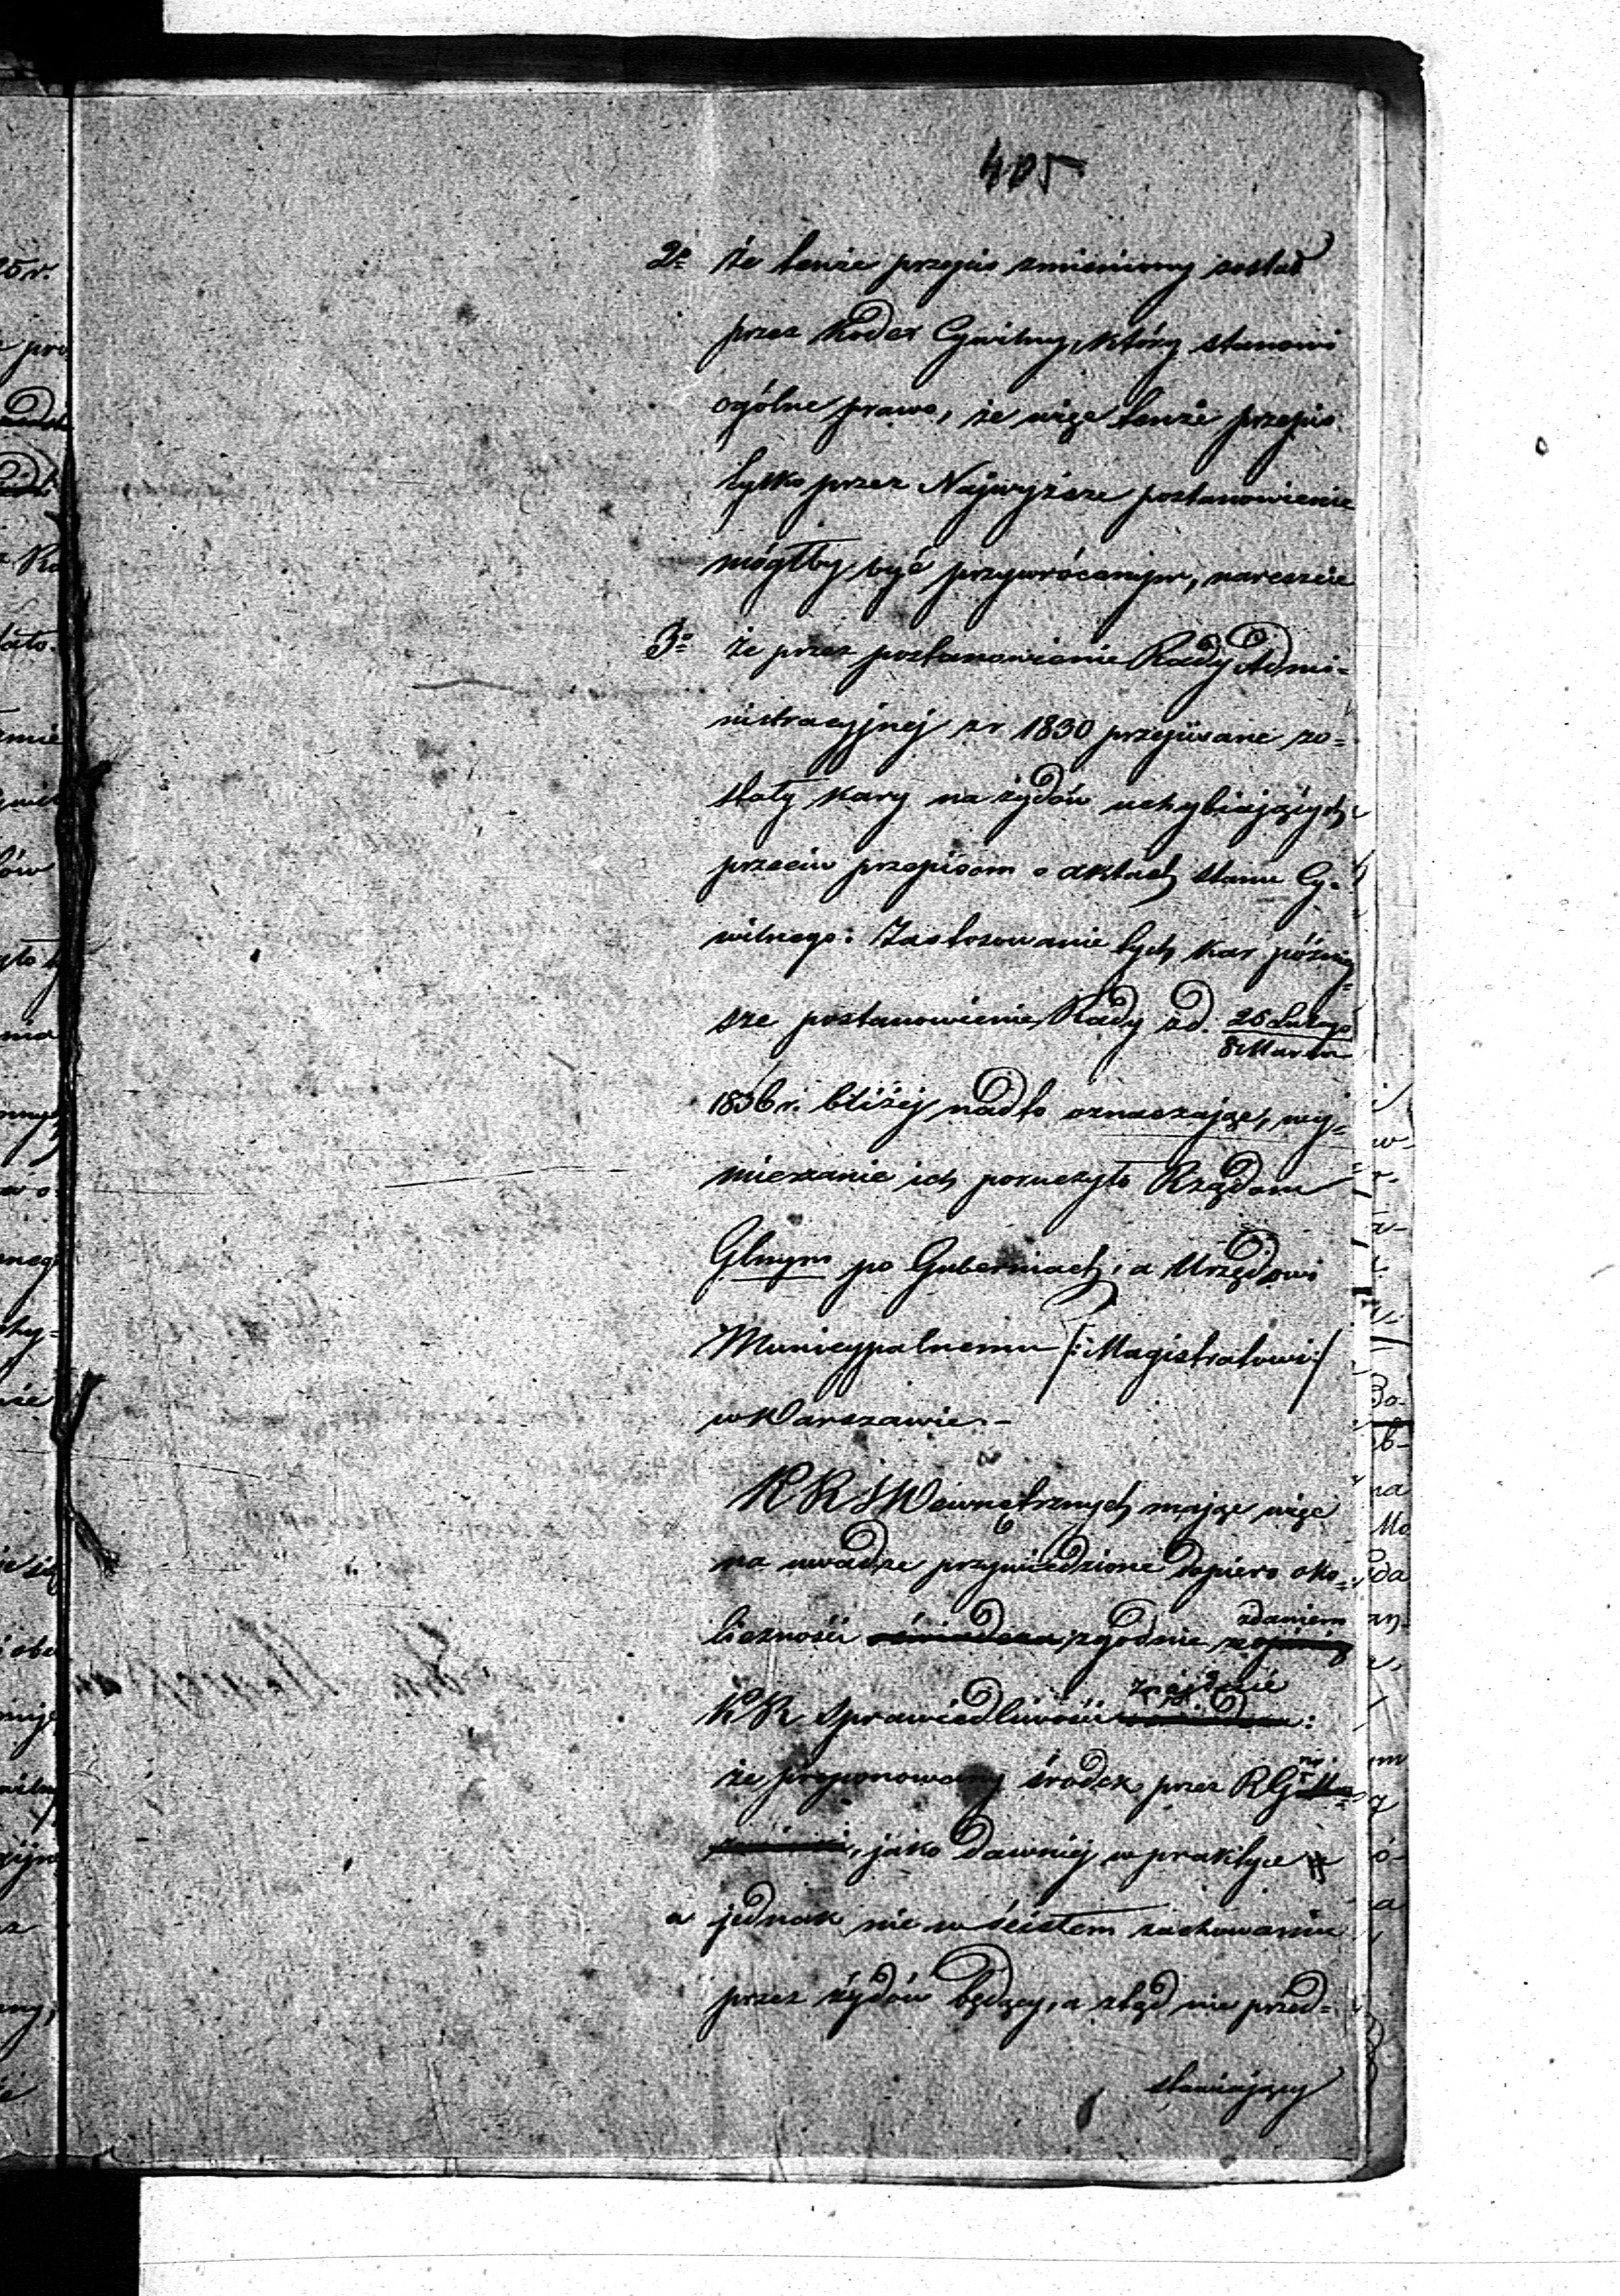 405
2º że tenże przepis zmieniony został
przez Kodex Cywilny, który stanowi
ogólne prawo, że więc tenże przepis
tylko przez Najwyższe postanowienie
mógłby być przywróconym, nareszcie
3º że przez postanowienie Rady Admi=
nistracyjnej z r 1830 przepisane zo=
stały kary na żydów uchybiających
przeciw przepisom o aktach stanu Cy=
wilnego: Zastosowanie tych kar późniey=
sze postanowienie Rady z d. 25 Lutego
8 Marca
1836 r. bliżej nadto oznaczając, wy=
mierzanie ich poruczyło Rządom
Glnym po Guberniach, a Urzędowi
Municypalnemu /: Magistratowi :/
w Warszawie. –
KRSWewnętrznych mając więc
na uwadze przywiedzione dopiero oko=
zdaniem
liczności oświadcza zgodnie z opinią
znajdzie
KR Sprawiedliwości :
że proponowany środek przez RG
, jako dawniej w praktyce #
a jednak nie w ścisłem zachowaniu
przez żydów będący, a ztąd nie przed=
stawiający